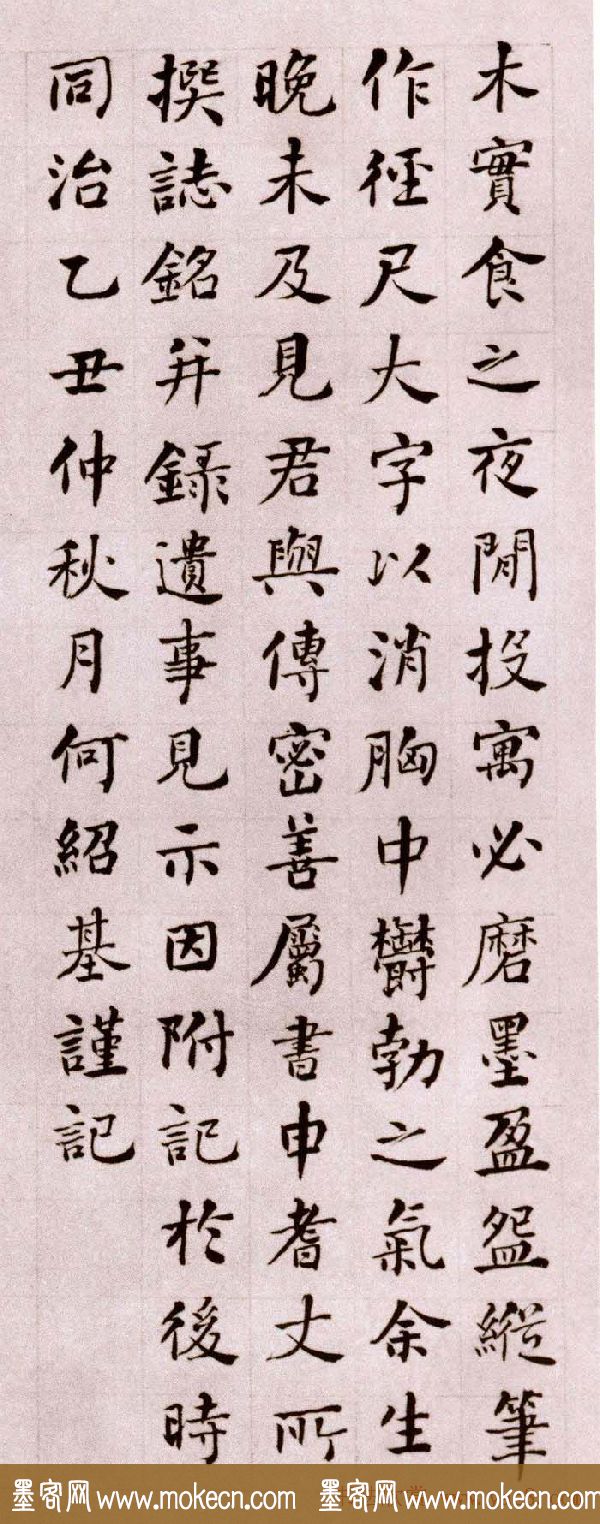 木實食之夜閒投寓必磨墨盈盌縱筆
作徑尺大字以消胸中鬱勃之氣余生
晚未及見君與傳密善屬書申耆丈所
撰誌銘并錄遺事見示因附記於後時
同治乙丑仲秋月何紹基謹記
墨客网 www.mokecn.com 墨客网 www.mokecn.com